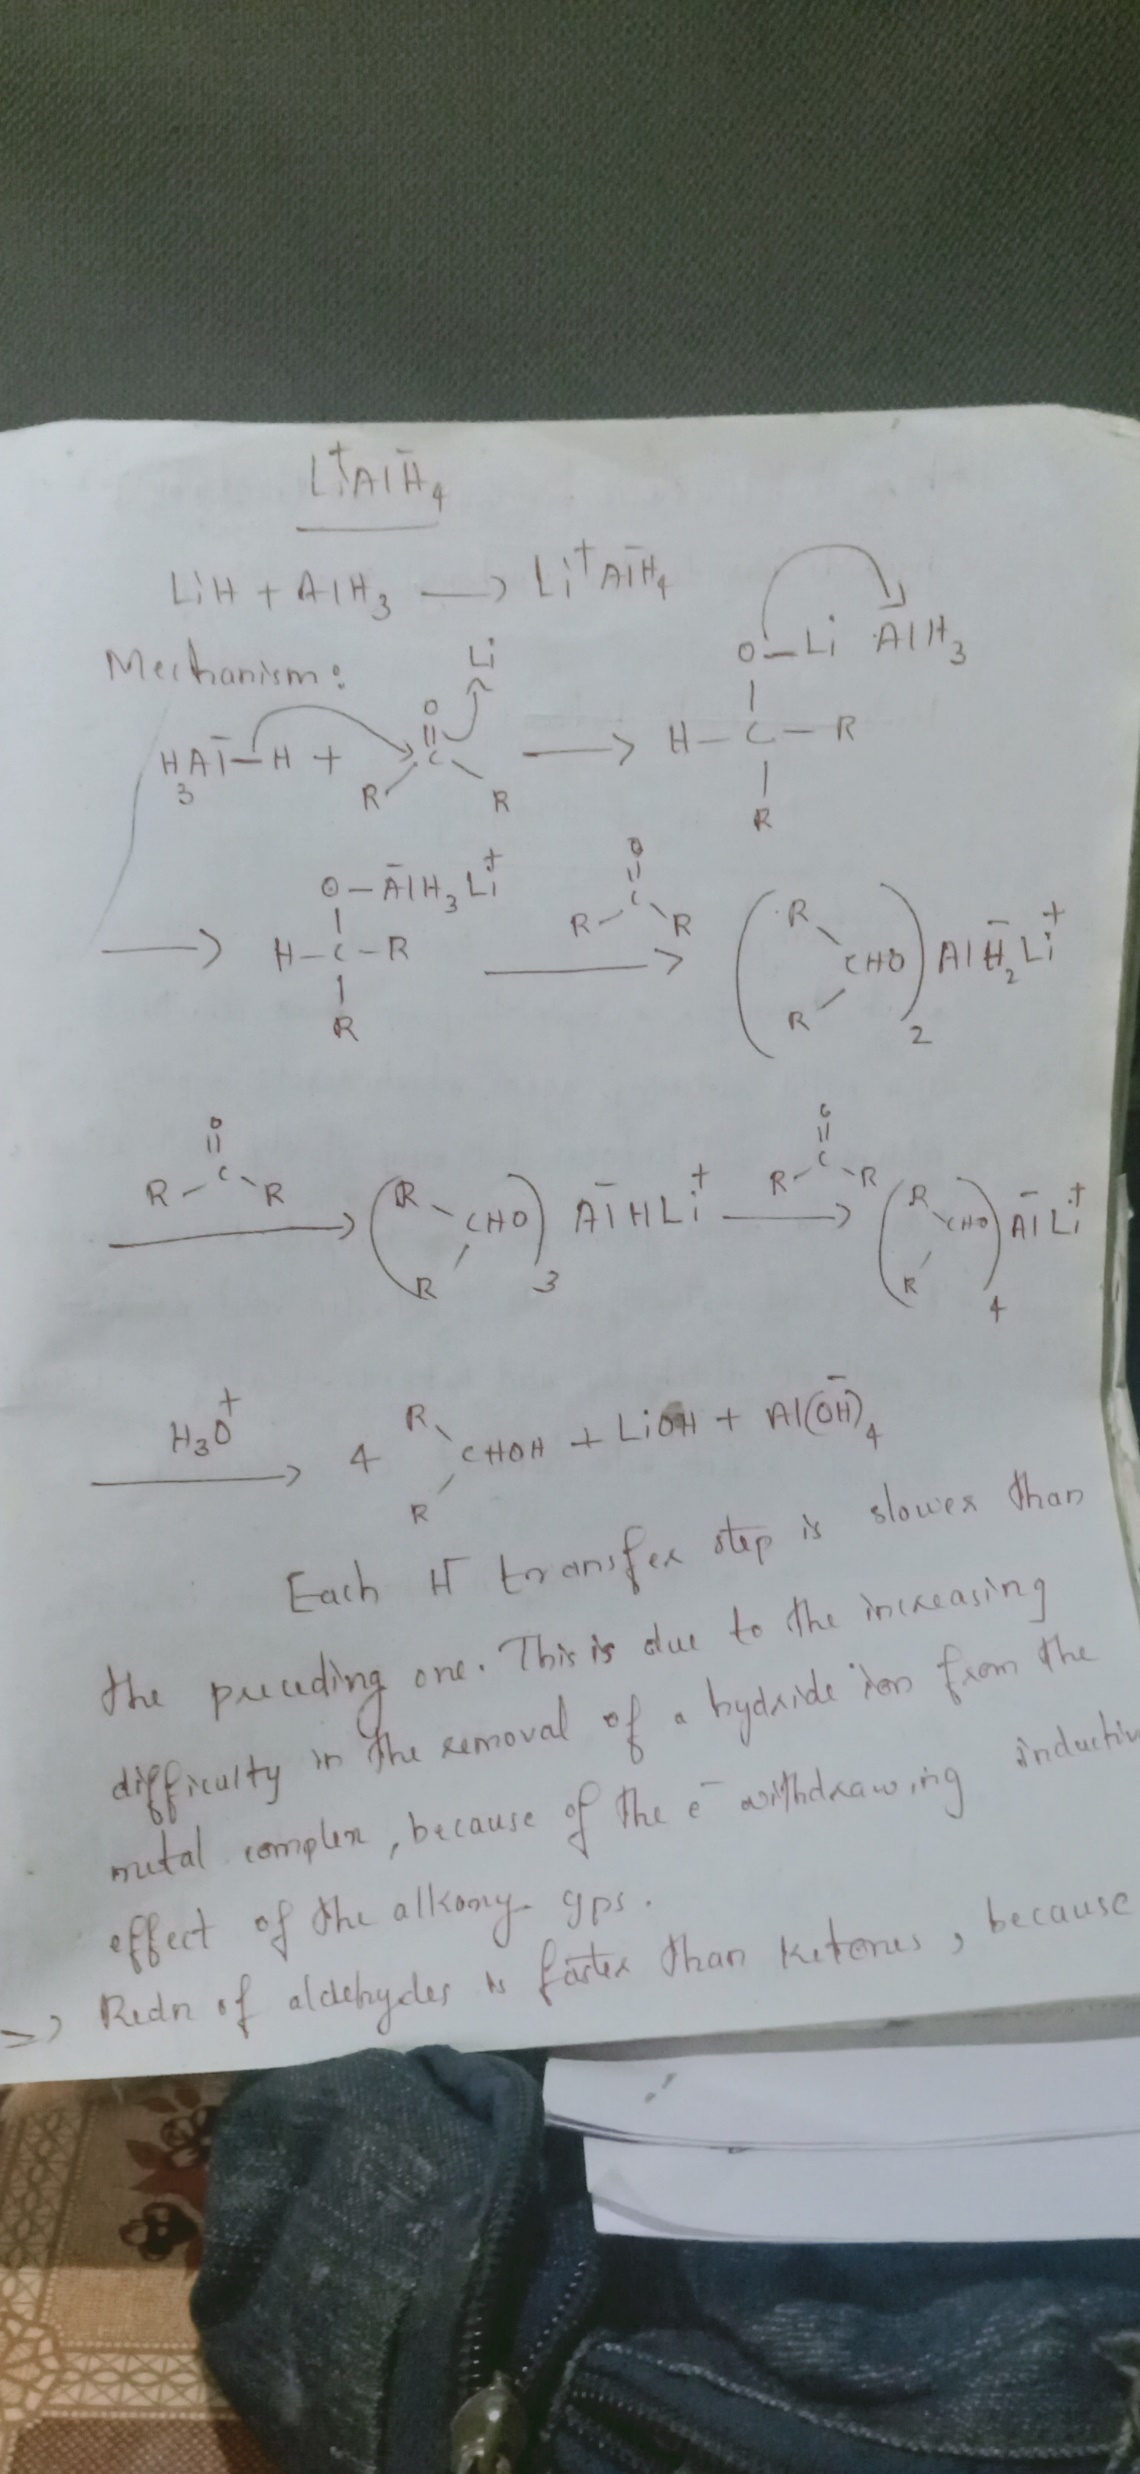 Li⁺AlH̄₄
LiH + AlH₃ ⟶ Li⁺AlH̄₄
Mechanism:
Li
O – Li AlH₃
H₃Al̄–H + R C=O R ⟶ H – C – R
R
⟶ O – ĀlH₃ Li⁺
H – C – R
R
R C=O R ⟶ (R R CHO)₂ AlH̄₂Li⁺
R C=O R ⟶ (R R CHO)₃ Al̄HLi⁺ R C=O R ⟶ (R R CHO)₄ Al̄Li⁺
H₃O⁺ ⟶ 4 R R CHOH + LiOH + Al(OH̄)₄
Each H⁻ transfer step is slower than
the preceding one. This is due to the increasing
difficulty in the removal of a hydride ion from the
metal complex, because of the e⁻ withdrawing inductiv
effect of the alkoxy gps.
=> Redn of aldehydes is faster than ketones, because